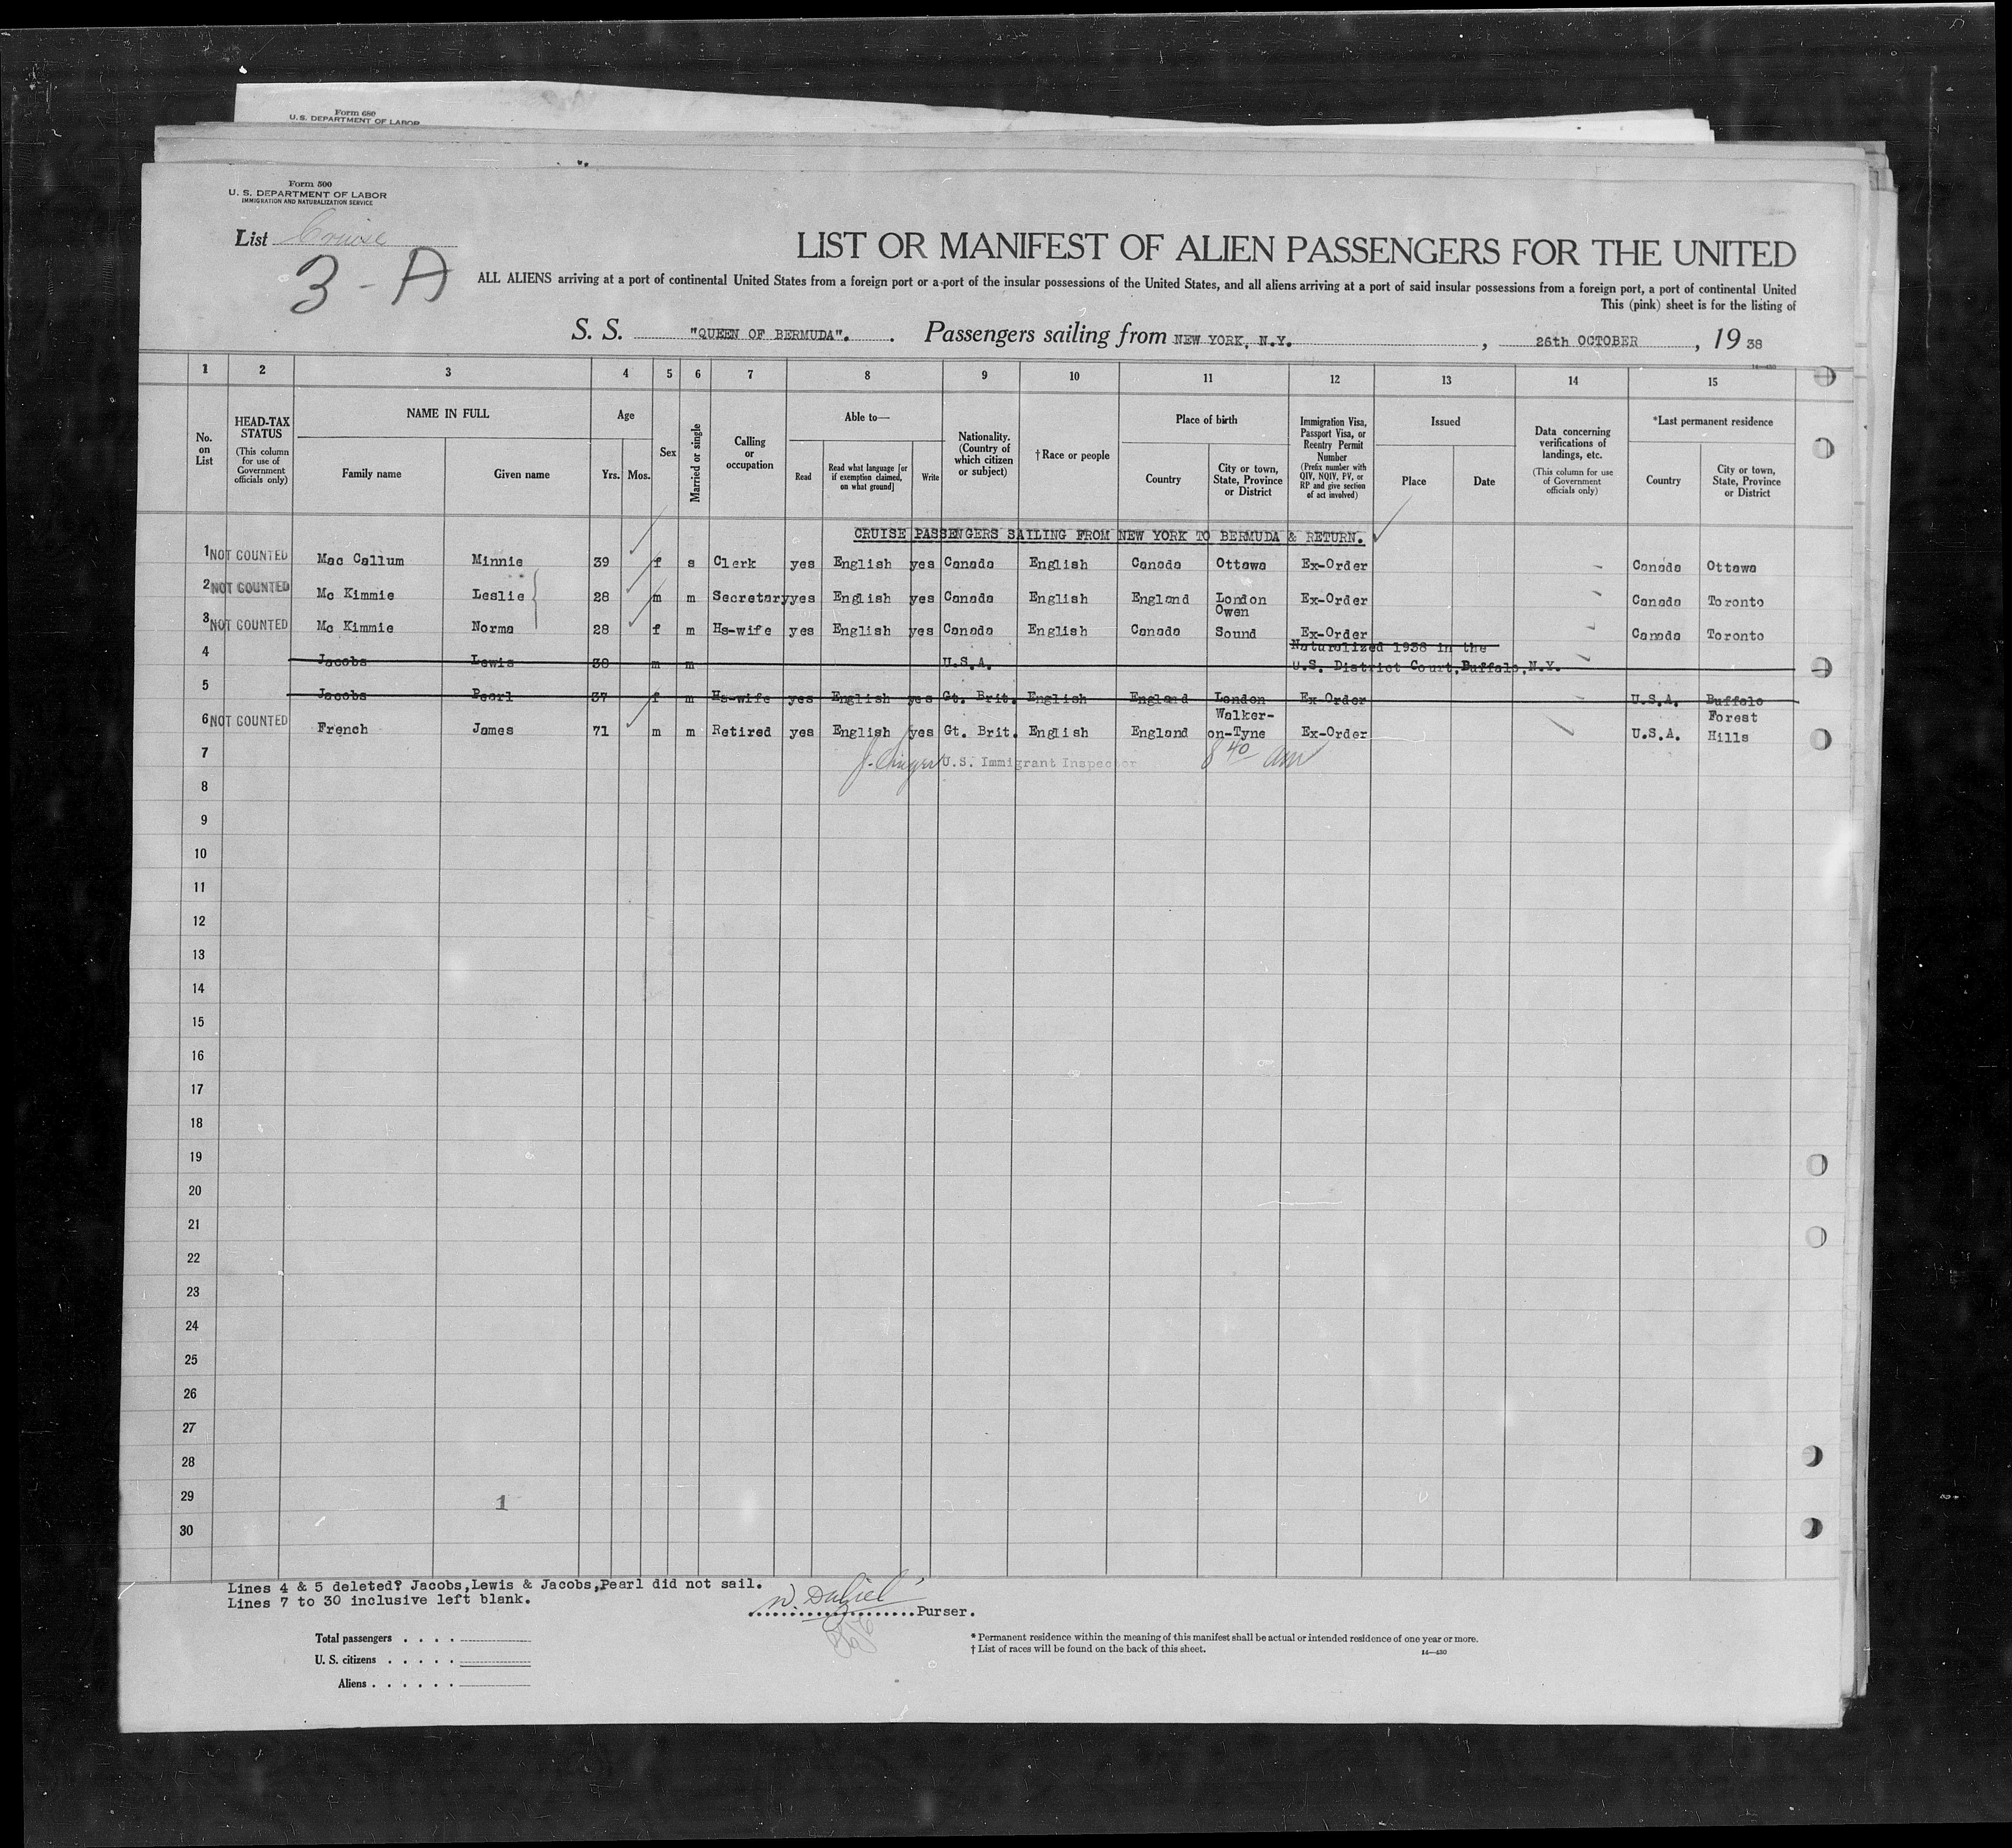 Form 680
U. S. DEPARTMENT OF LABOR
Form 500
U. S. DEPARTMENT OF LABOR
IMMIGRATION AND NATURALIZATION SERVICE
List Cruise
3-A
LIST OR MANIFEST OF ALIEN PASSENGERS FOR THE UNITED
ALL ALIENS arriving at a port of continental United States from a foreign port or a port of the insular possessions of the United States, and all aliens arriving at a port of said insular possessions from a foreign port, a port of continental United
This (pink) sheet is for the listing of
S. S. "QUEEN OF BERMUDA". Passengers sailing from NEW YORK, N.Y. , 26th OCTOBER , 19 38
14—430
1 2 3 4 5 6 7 8 9 10 11 12 13 14 15
No. on List
HEAD-TAX STATUS (This column for use of Government officials only)
NAME IN FULL
Family name Given name
Age
Yrs. Mos.
Sex
Married or single
Calling or occupation
Able to—
Read Read what language [or if exemption claimed, on what ground] Write
Nationality. (Country of which citizen or subject)
†Race or people
Place of birth
Country City or town, State, Province or District
Immigration Visa, Passport Visa, or Reentry Permit Number (Prefix number with QIV, NQIV, PV, or RP and give section of act involved)
Issued
Place Date
Data concerning verifications of landings, etc. (This column for use of Government officials only)
*Last permanent residence
Country City or town, State, Province or District
CRUISE PASSENGERS SAILING FROM NEW YORK TO BERMUDA & RETURN.
1 NOT COUNTED Mac Callum Minnie 39 f s Clerk yes English yes Canada English Canada Ottawa Ex-Order Canada Ottawa
2 NOT COUNTED Mc Kimmie Leslie 28 m m Secretary yes English yes Canada English England London Ex-Order Canada Toronto
3 NOT COUNTED Mc Kimmie Norma 28 f m Hs-wife yes English yes Canada English Canada Owen Sound Ex-Order Canada Toronto
4 Jacobs Lewis 38 m m U.S.A. Naturalized 1938 in the U.S. District Court, Buffalo, N.Y.
5 Jacobs Pearl 37 f m Hs-wife yes English yes Gt. Brit. English England London Ex-Order U.S.A. Buffalo
6 NOT COUNTED French James 71 m m Retired yes English yes Gt. Brit. English England Walker-on-Tyne Ex-Order U.S.A. Forest Hills
7 U.S. Immigrant Inspector 8 40 am
8
9
10
11
12
13
14
15
16
17
18
19
20
21
22
23
24
25
26
27
28
29
1
30
Lines 4 & 5 deleted? Jacobs,Lewis & Jacobs,Pearl did not sail.
Lines 7 to 30 inclusive left blank.
Purser.
Total passengers . . . .
U. S. citizens . . . . .
Aliens . . . . . .
* Permanent residence within the meaning of this manifest shall be actual or intended residence of one year or more.
† List of races will be found on the back of this sheet.
14—430